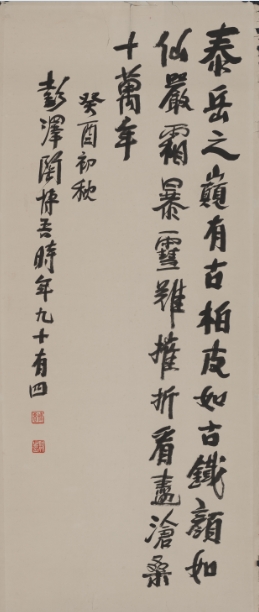 泰岳之巔有古柏皮如古鐵顏如
仙嚴霜暴雪難摧折看盡滄桑
十萬年
癸酉初秋
彭澤陶博吾時年九十有四